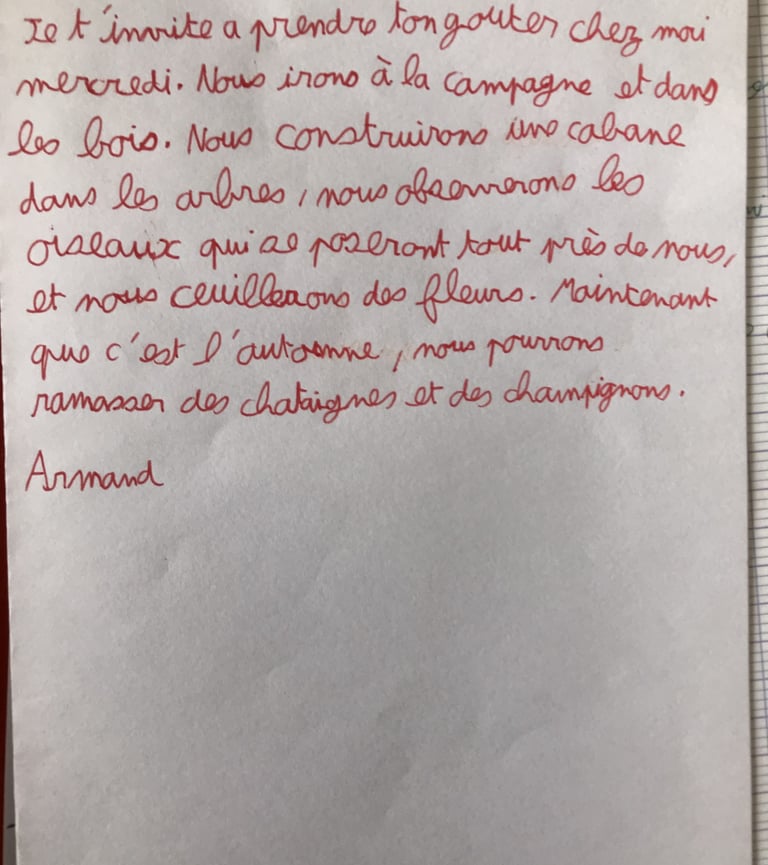 Je t'invite a prendre ton gouter chez moi
mercredi. Nous irons à la campagne et dans
les bois. Nous construirons une cabane
dans les arbres, nous observerons les
oiseaux qui se poseront tout près de nous,
et nous ceuillerons des fleurs. Maintenant
que c'est l'automne, nous pourrons
ramasser des chataignes et des champignons.
Armand